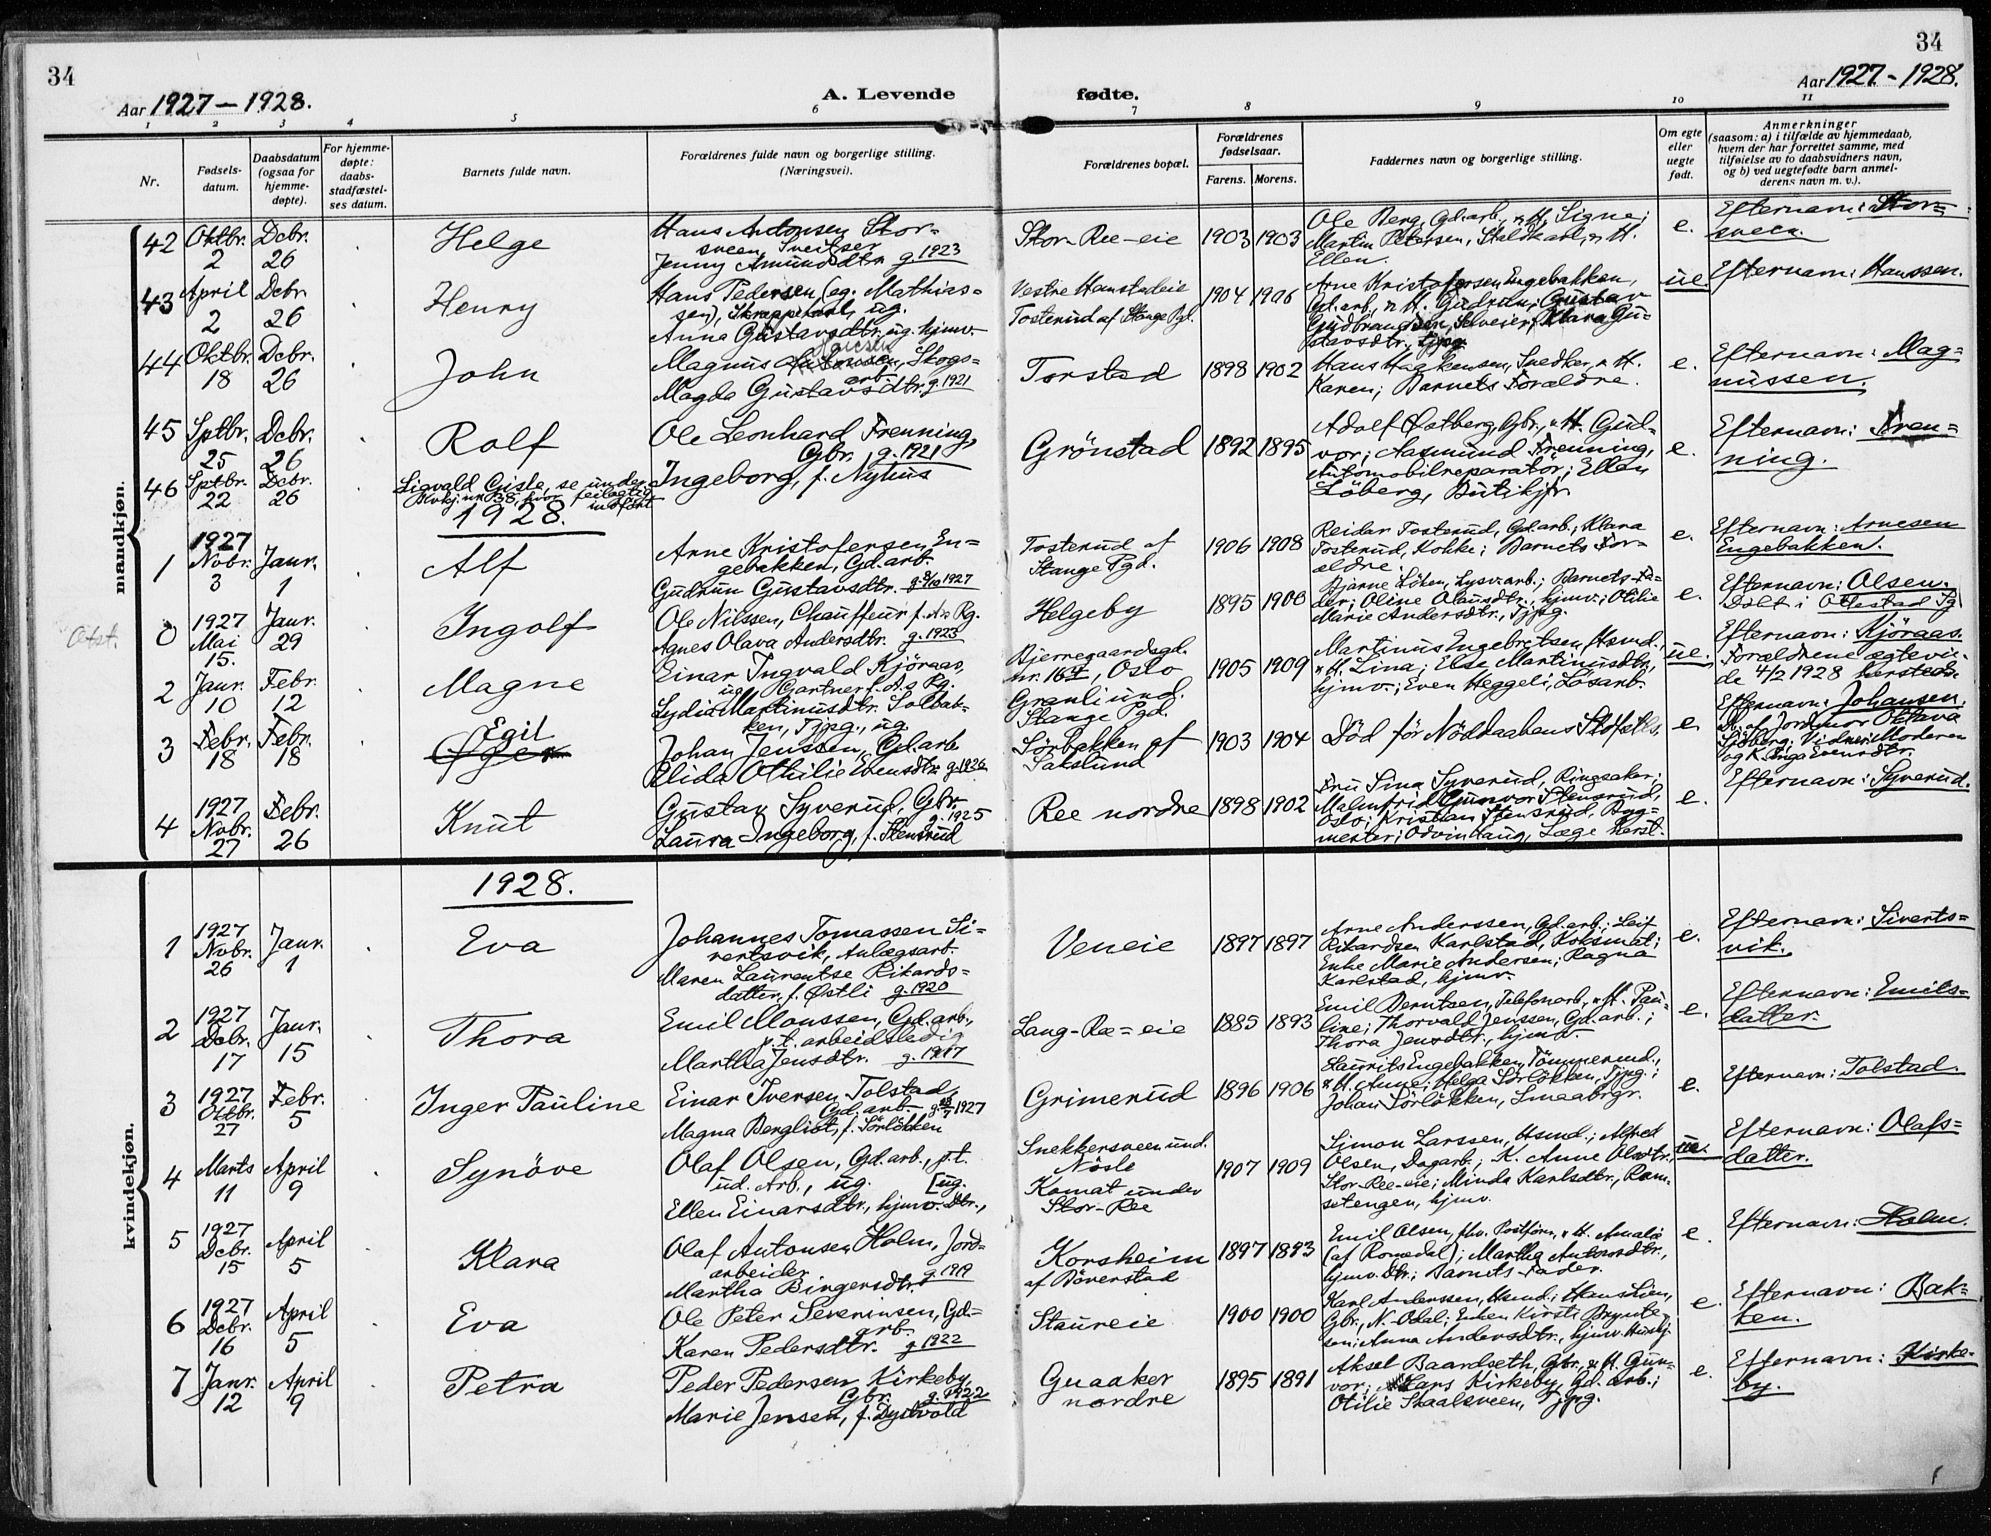 34
34
Aar 1927 – 1928.
A. Levende fødte.
Aar 1927 – 1928.
1 2 3 4 5 6 7 8 9 10 11
Nr.
Fødsels-
datum.
Daabsdatum
(ogsaa for
hjemme-
døpte).
For hjemme-
døpte:
daabs-
stadfæstel-
ses datum.
Barnets fulde navn.
Forældrenes fulde navn og borgerlige stilling.
(Næringsvei).
Forældrenes bopæl.
Forældrenes
fødselsaar.
Farens. Morens.
Faddernes navn og borgerlige stilling.
Om egte
eller
uegte
født.
Anmerkninger
(saasom: a) i tilfælde av hjemmedaab,
hvem der har forrettet samme, med
tilføielse av to daabsvidners navn,
og b) ved uegtefødte barn anmel-
derens navn m. v.).
mandkjøn.
42
Oktbr.
2
Dcbr.
26
Helge
Hans Antonsen Stor-
sveen, Sveitser
Jenny Amundsdtr. g. 1923
Stor-Ree-eie
1903 1903
Ole Berg, Gd.arb., & H. Signe;
Martin Petersen, Staldkarl, & H.
Ellen.
e.
Efternavn: Stor-
sveen.
43
April
2
Dcbr
26
Henry
Hans Pedersen (eg. Mathias-
sen), ug.
Anna Gustavsdtr. ug. hjmv.
Vestre Hanstadeie
Tosterud af Stange Pgl.
1904 1906
Arne Kristofersen Engebakken,
Gd.arb., & H. Gudrun; Gustav
Gudbrandsen, Selveier; Klara Gu-
stavsdtr., tjpg.
ue.
Efternavn: Hanssen.
44
Oktbr.
18
Dcbr.
26
John
Magnus Skogs-
arb.
Magda Gustavsdtr. g. 1921
Torstad
1898 1902
Hans Haakensen, Snedker, & H.
Karen; Barnets Forældre.
e.
Efternavn: Mag-
nussen.
45
Sptbr.
25
Dcbr.
26
Rolf
Ole Leonhard Frenning,
Gbr. g. 1921
Ingeborg, f. Nyhus
Grönstad
1892 1895
Adolf Østberg, Gbr., & H. Gud-
vor; Aasmund Frenning,
Automobilreparatör; Ellen
Löberg, Butikjfr.
e.
Efternavn: Fren-
ning.
46
Sptbr.
22
Dcbr.
26
Sigvald Gisle, se under
Kvkj. nr. 38, hvor feilagtig
indført
1928.
1
1927
Novbr.
3
Janr.
1
Alf
Arne Kristofersen En-
gebakken, Gd.arb.
Gudrun Gustavsdtr. g. 8/10 1927
Tosterud af
Stange Pgd.
1906 1908
Reidar Tosterud, Gd.arb.; Klara
Tosterud, Kokke; Barnets For-
ældre.
e.
Efternavn: Arnesen
Engebakken.
Otst.
0
1927
Mai
15.
Janr.
29
Ingolf
Ole Nilssen, Chauffeur f. As Pg.
Agnes Olava Andersdtr. g. 1923
Helgeby
1895 1900
Bjarne Löken, Lysv.arb.; Barnets Fa-
der; Oline Olausdtr., hjmv.; Otilie
Marie Andersdtr., Tjpg.
e.
Efternavn: Olsen.
Döbt i Ottestad Sg.
2
Janr.
10
Febr.
12
Magne
Einar Ingvald Kjöraas,
ug. Gartner f. As Pg.
Lydia Martinusdtr. Solbak-
ken, Tjpg., ug.
Bjerregaardsgd.
nr. 16, Oslo
Granli und.
Stange Pgd.
1905 1909
Martinus Engebretsen, Hsmd.
& H. Lina; Else Martinusdtr.,
hjmv.; Even Heggeli, Løsarb.
ue.
Efternavn: Kjöraas.
Forældrene ægtevie-
de 4/2 1928 herstds.
3
Febr.
18
Febr.
18
Egil
Johan Jenssen, Gd.arb.
Elida Othilie Evensdtr. g. 1926
Sörbakken af
Sakslund
1903 1904
Död för Nöddaabens Stdfstls.
e.
Efternavn: Johansen.
Db. af Jordmor Ottava
Sjöberg. Vidner: Moderen
og K. Inga Evensdtr.
4
1927
Novbr.
27
Febr.
26
Knut
Gustav Syverud, Gbr.
g. 1925
Laura Ingeborg, f. Stensrud
Ree nordre
1898 1902
Fru Lina Syverud, Ringsaker;
Malmfrid Gunvor Stensrud,
Oslo; Kristian Stensrud, Byg-
mester; Odvin Haug, Læge herst.
e.
Efternavn: Syverud.
kvindekjøn.
1928.
1
1927
Novbr.
26
Janr.
1
Eva
Johannes Tomassen Si-
vertsvik, Anlægsarb.
Maren Laurentse Rikards-
datter, f. Østli g. 1920
Veneie
1897 1897
Arne Anderssen, Gd.arb.; Leif
Rikardsen Karlstad, Koksmat;
Enke Marie Andersen; Ragna
Karlstad, hjmv.
e.
Efternavn: Siverts-
vik.
2
1927
Dcbr.
17
Janr.
15
Thora
Emil Monssen, Gd.arb.,
p. t. arbeidsledig
Martha Jensdtr. g. 1917
Lang-Ree-eie
1885 1893
Emil Berntsen, Telefonarb., & H. Pau-
line; Thorvald Jenssen, Gd.arb.;
Thora Jensdtr., hjmv.
e.
Efternavn: Emils-
datter.
3
1927
Oktbr.
27
Febr.
5
Inger Pauline
Einar Iversen Tolstad,
Gd.arb. 1927
Magna Bergliot, f. Sörlökken
Grimerud
1896 1906
Laurits Engebakken, Tömmermd.,
& H. Anne; Helga Sörlökken, Tjpg.;
Johan Sörlökken, Smaabrgr.
e.
Efternavn: Tolstad.
4
Marts
11
April
9
Synöve
Olaf Olsen, Gd.arb., p.t.
ud. Arb., ug. [ug.
Ellen Einarsdtr., hjmv. Dtr.,
Snekkersveen und.
Nösle
Komat under
Stor-Ree
1907 1909
Simon Larssen, Hsmd.; Alfred
Olsen, Dagarb.; K. Anne Olsdtr.,
Stor-Ree-eie; Minda Karlsdtr., Rom-
setengen, hjmv.
ue.
Efternavn: Olafs-
datter.
5
1927
Dcbr.
15
April
5
Klara
Olaf Antonsen Holm, Jord-
arbeider
Martha Bingersdtr. g. 1919
Korsheim
af Böverstad
1897 1893
Emil Olsen, fhv. Postförn, & H. Amalie
(af Romedal); Martha Antonsdtr.,
hjmv. Dtr.; Barnets Fader.
e.
Efternavn: Holm.
6
1927
Dcbr.
16
April
5
Eva
Ole Peter Severinsen, Gd-
arb.
Karen Pedersdtr. g. 1922
Staureie
1900 1900
Karl Anderssen, Hsmd.; Hans Lien,
Gbr., N.-Odal; Enken Kirsti Brynte-
sen; Anna Andersdtr., hjmv.
e.
Efternavn: Bak-
ken.
7
Janr.
12
April
9
Petra
Peder Pedersen Kirkeby,
Gbr. g. 1922
Marie Jensen, f. Dystvold
Guaaker
nordre
1895 1891
Aksel Baardseth, Gbr., & H. Gun-
vor; Lars Kirkeby, Gd.arb.;
Otilie Skaalsveen, Tjpg.
e.
Efternavn: Kirke-
by.